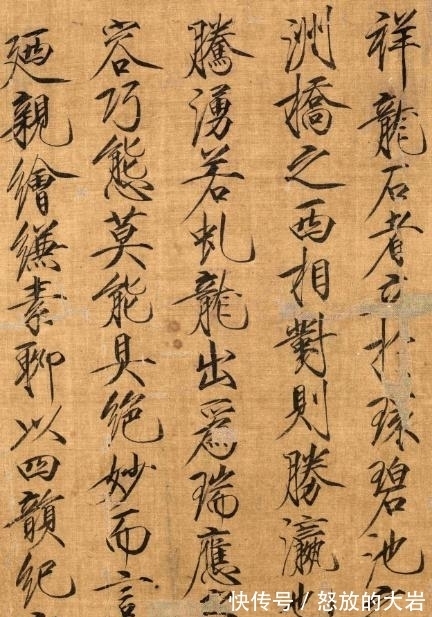 祥龍石者立於環碧池
洲橋之西相對則勝瀛也
騰湧若虬龍出為瑞應
容巧態莫能具絕妙而言
廼親繪縑素聊以四韻紀
快传号 / 怒放的大岩